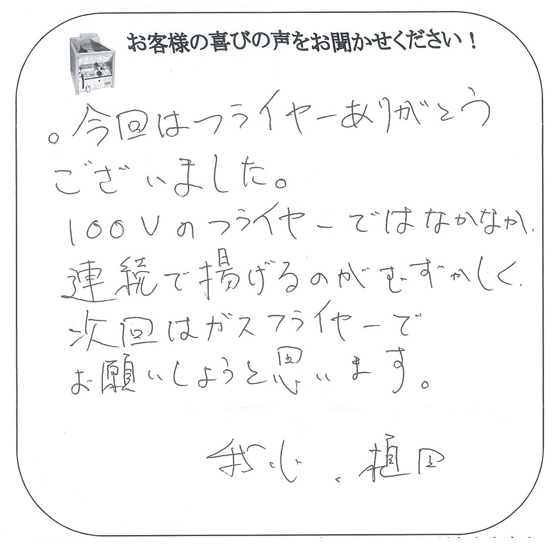 お客様の喜びの声をお聞かせください！
。今回はフライヤーありがとう
ございました。
100Vのフライヤーではなかなか、
連続で揚げるのがむずかしく、
次回はガスフライヤーで
お願いしようと思います。
我心、植田